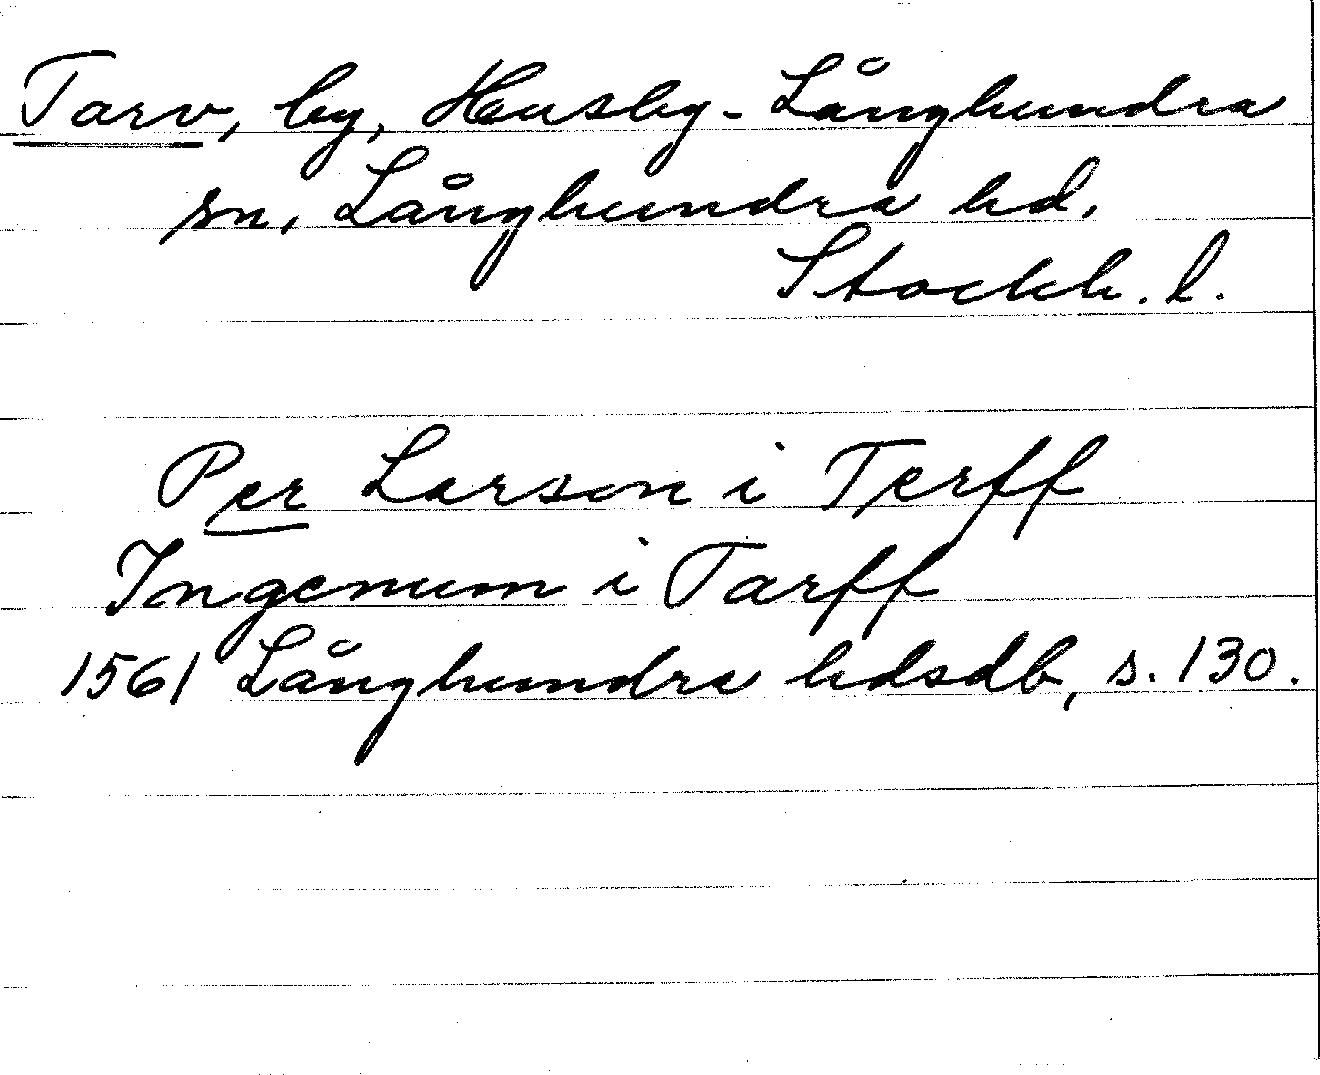 Tarv, by, Husby-Långhundra
sn, Långhundra hd.
Stockh. l.
Per Larson i Terff
Ingemum i Tarff
1561 Långhundra hdsdb, s. 130.